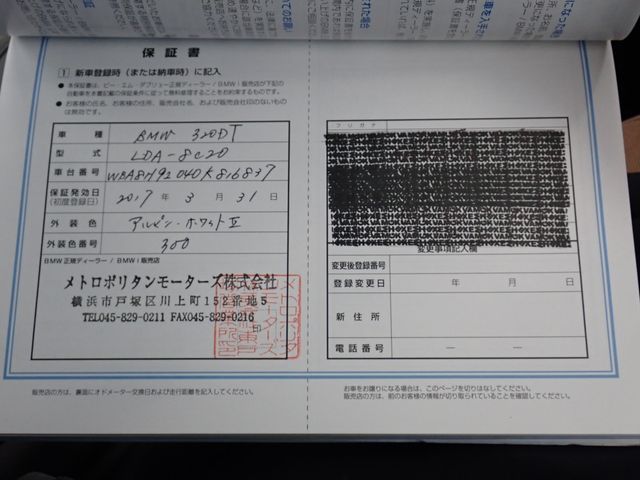 保証書
1 新車登録時(または納車時)に記入
● 本保証書は、ビー・エム・ダブリュー正規ディーラー/BMW i 販売店が下記の
自動車を本書記載の保証条件に従って無料修理することをお約束するものです。
● お客様の氏名、お客様の住所、販売会社名、および販売会社印のないもの
は無効です。
車種 BMW 320DT
型式 LDA-8C20
車台番号 WBA8H92040K816837
保証発効日 2017年3月31日
(初度登録日)
外装色 アルピン・ホワイトⅢ
外装色番号 300
BMW正規ディーラー/BMW i 販売店
メトロポリタンモーターズ株式会社
横浜市戸塚区川上町152番地5
TEL045-829-0211 FAX045-829-0216
印
販売店の方は、裏面にオドメーター交換日および走行距離を記入してください。
フリガナ
変更事項記入欄
変更後登録番号
登録変更日 年 月 日
新住所
電話番号 ― ―
お車をお譲りになる場合は、このページを切りはなしてください。
販売店の方は、前のお客様の情報が切り取られていることを確認してください。